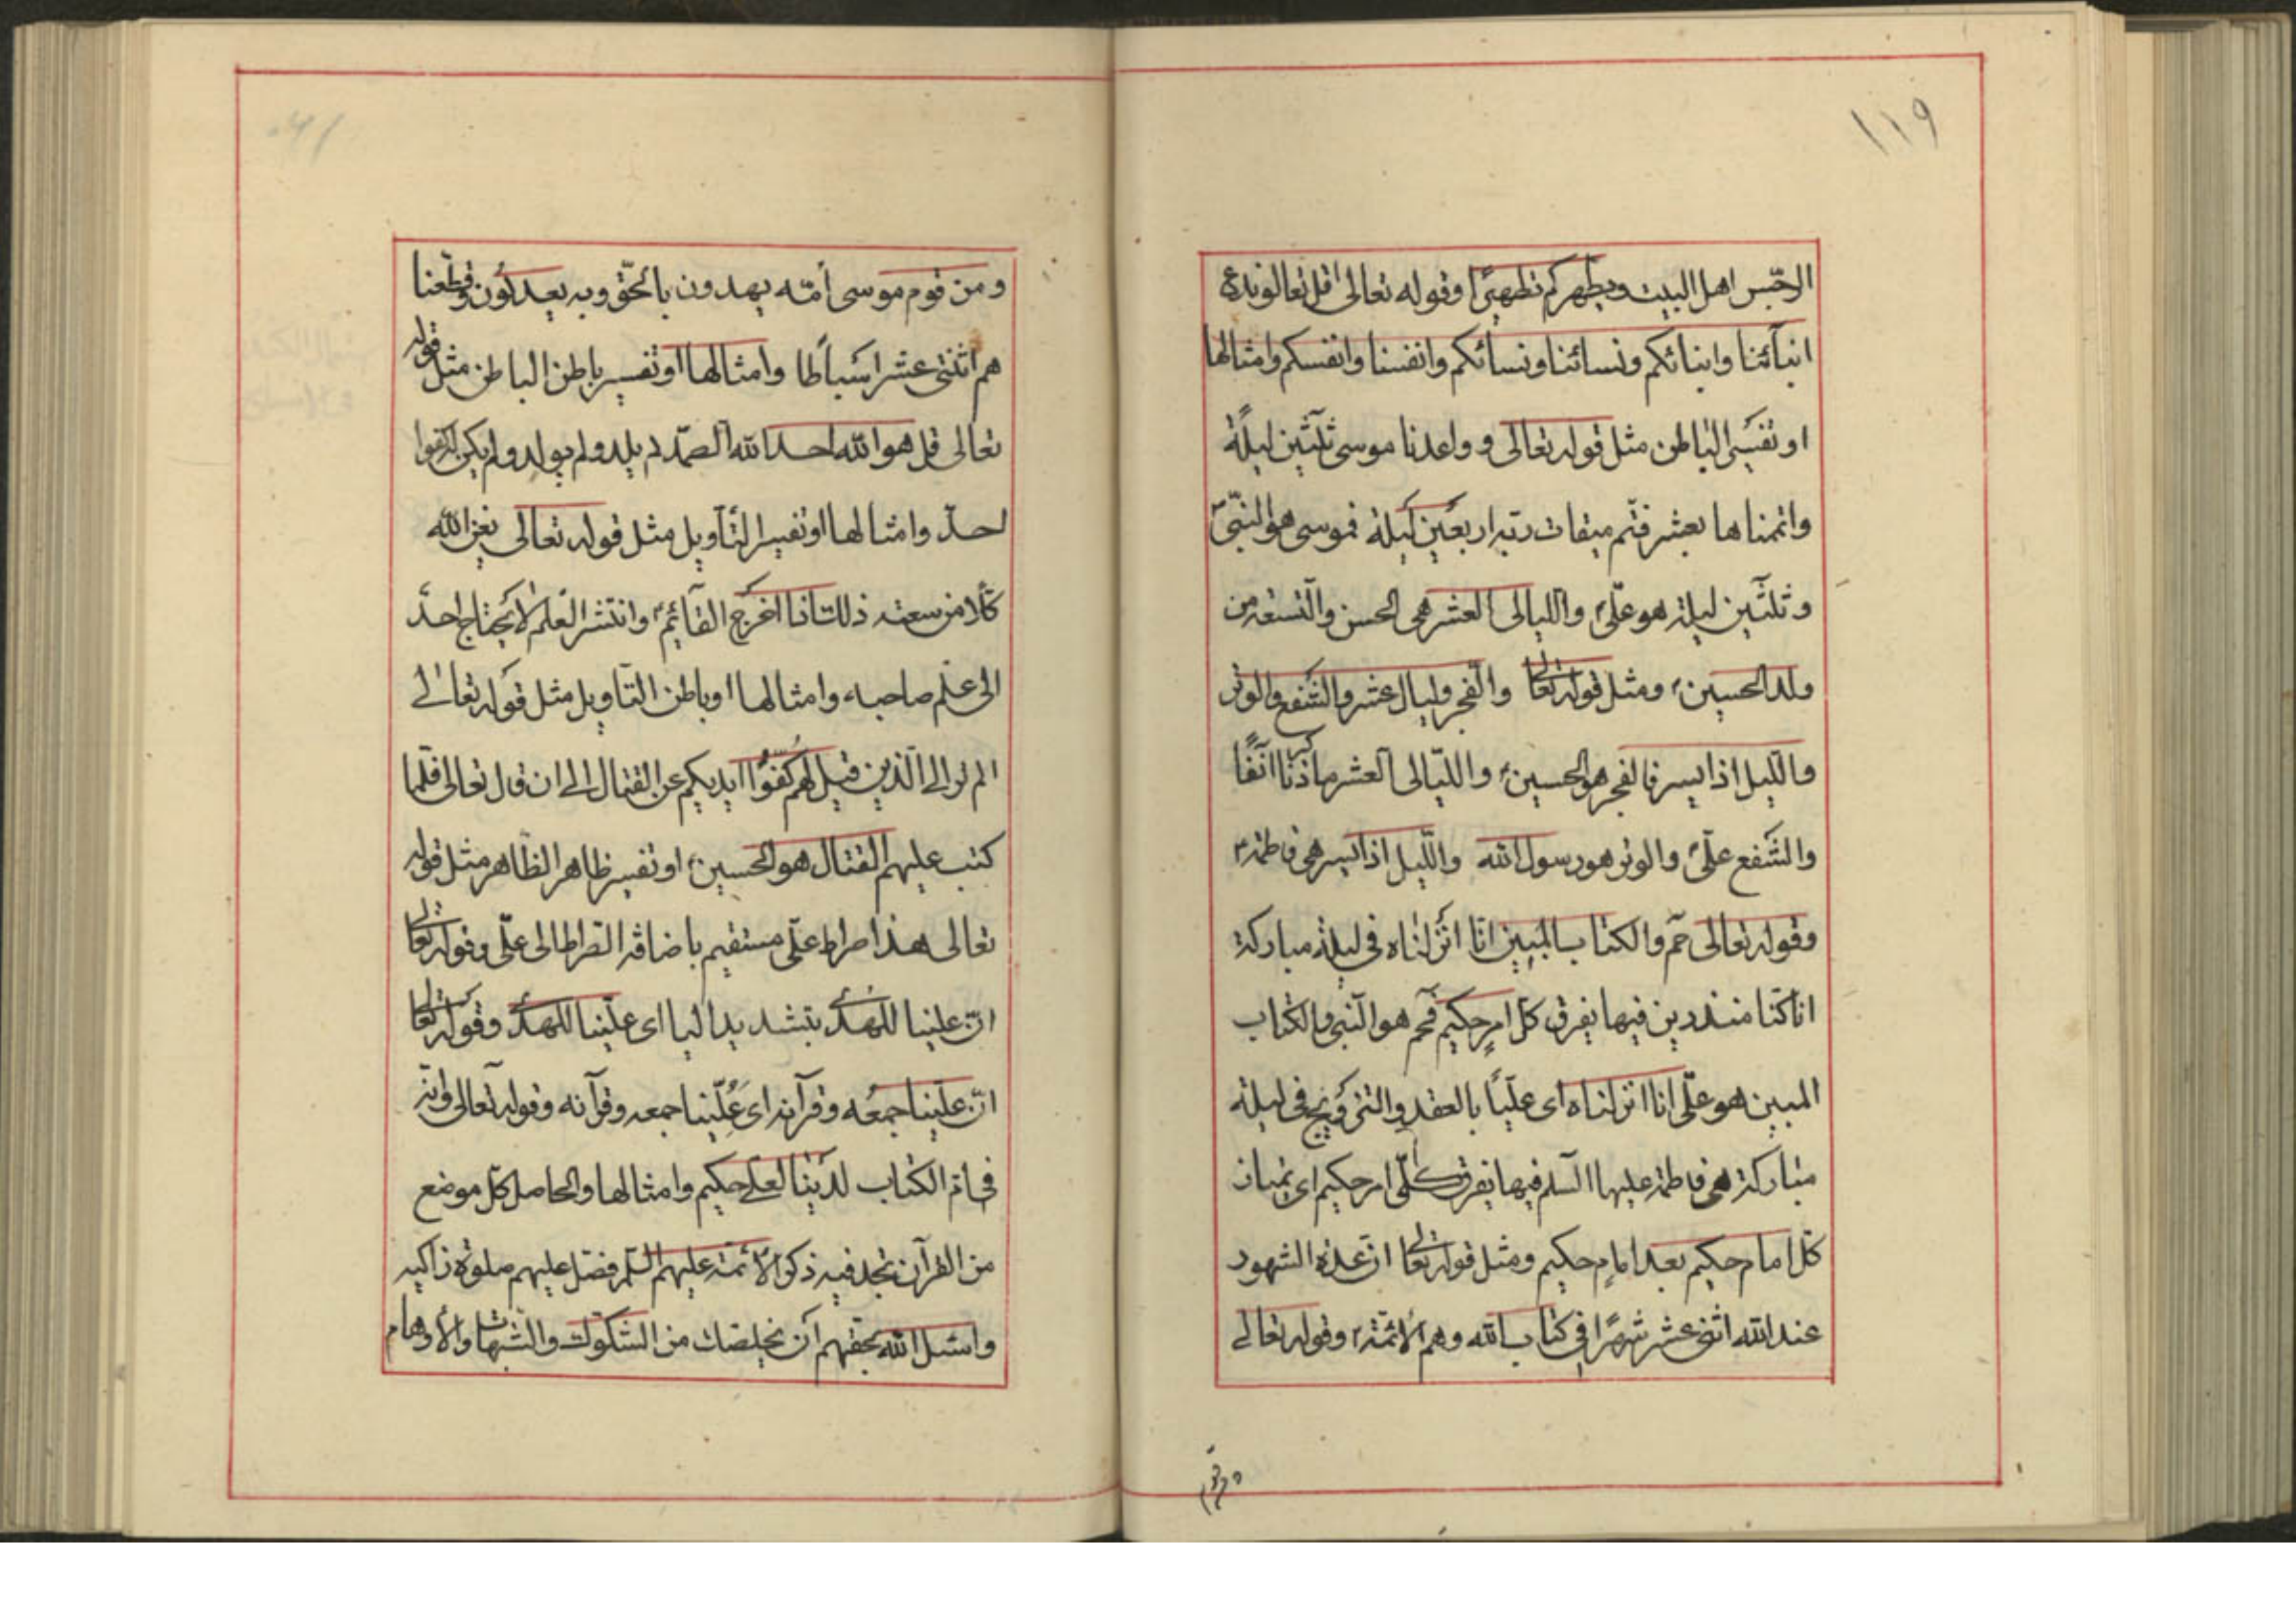 ١١٩
الرجس اهل البيت ويطهركم تطهيرًا وقوله تعالى قل تعالوا ندع
ابنآئنا وابنائكم ونسائنا ونسائكم وانفسنا وانفسكم وامثالها
او تفسير الباطن مثل قوله تعالى و واعدنا موسى ثلثين ليلة
واتممناها بعشر فتم ميقات ربه اربعين ليلة فموسى هو النبيّ
وثلثين ليلة هو عليّ واليالى العشر هى الحسن والتسعة من
ولد الحسين ومثل قوله تعالى والفجر وليال عشر والشفع والوتر
والليل اذا يسر فالفجر هو الحسين والليالى العشر ما ذكرنا آنفًا
والشفع عليّ والوتر هو رسول الله والليل اذا يسر هى فاطمة
وقوله تعالى حم والكتاب المبين انّا انزلناه فى ليلة مباركة
انا كنا منذرين فيها يفرق كل امرٍ حكيم فحم هو النبى والكتاب
المبين هو عليّ انا انزلناه اى عليًا بالعقد والتزويج فى ليلة
مباركة هى فاطمة عليها السلم فيها يفرق كلّ امر حكيم اى
كل امام حكيم بعد امامٍ حكيم ومثل قوله تعالى انّ عدة الشهور
عند الله اثنى عشر شهرًا فى كتاب الله وهم الائمة وقوله تعالى
ومن قوم
ومن قوم موسى أمّة يهدون بالحقّ وبه يعدلون وقطّعنا
هم اثنتى عشر اسباطًا وامثالها او تفسير باطن الباطن مثل قوله
تعالى قل هو الله احد الله الصمد لم يلد ولم يولد ولم يكن له كفوا
احدٌ وامثالها او تفسير التأويل مثل قوله تعالى يغن الله
كلًا من سعته ذلك اذا اخرج القآئم وانتشر العلم لا يحتاج احدٌ
الى علم صاحبه وامثالها او باطن التأويل مثل قوله تعالى
الم تر الى الذين قيل لهم كفّوا ايديكم عن القتال الى ان قال تعالى فلما
كتب عليهم القتال هو الحسين او تفسير ظاهر الظاهر مثل قوله
تعالى هذا صراط عليّ مستقيم باضافة الصراط الى عليّ وقوله تعالى
انّ علينا للهدى بتشديد اليا اى عليّنا للهدى وقوله تعالى
انّ علينا جمعه وقرآنه اى عليّنا جمعه وقرآنه وقوله تعالى وانّه
فى ام الكتاب لدينا لعليّ حكيم وامثالها والحاصل كل موضع
من القرآن تجد فيه ذكر الائمة عليهم السلم فصل عليهم صلوة زاكية
واسئل الله بحقهم ان يخلصك من الشكوك والشبهات والأوهام